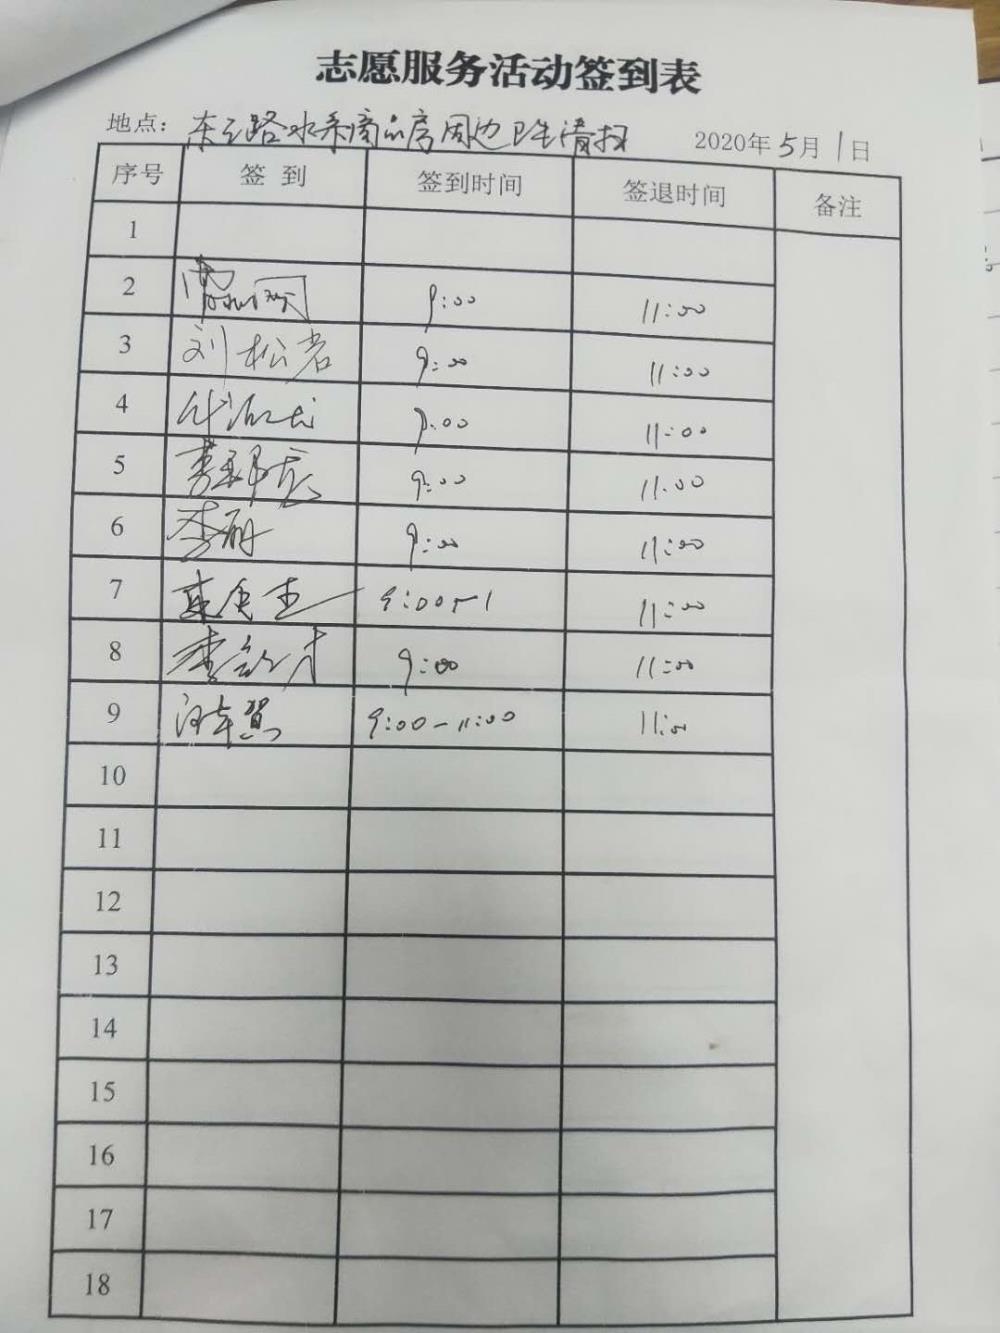 志愿服务活动签到表
地点: 东 路水系商品房周边卫生清扫 2020年5月1日
序号 签到 签到时间 签退时间 备注
1
2 9:00 11:00
3 刘松岩 9:00 11:00
4 9:00 11:00
5 9:00 11:00
6 李 9:00 11:00
7 9:00 11:00
8 李 9:00 11:00
9 9:00-11:00 11:00
10
11
12
13
14
15
16
17
18